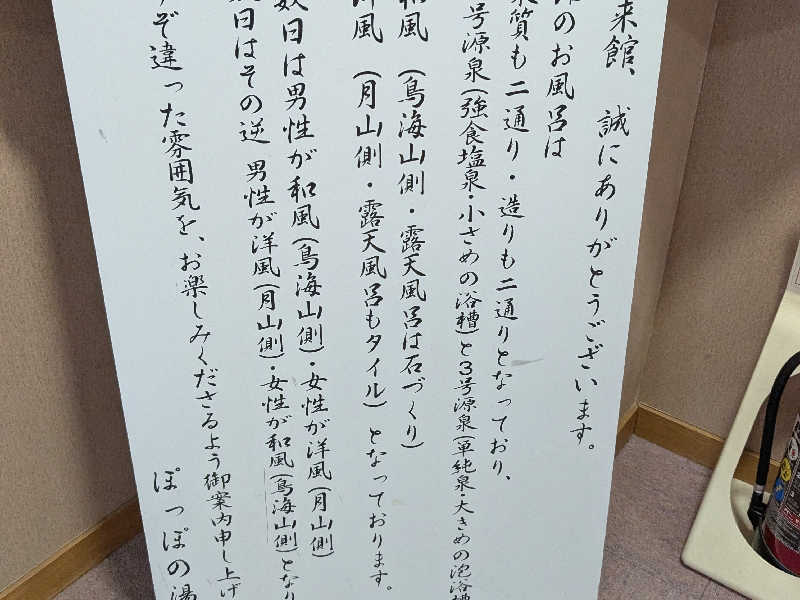 来館、誠にありがとうございます。
のお風呂は
質も二通り・造りも二通りとなっており、
号源泉(強食塩泉・小さめの浴槽)と3号源泉(単純泉・大きめの泡浴槽
和風(鳥海山側・露天風呂は石づくり)
洋風(月山側・露天風呂もタイル)となっております。
数日は男性が和風(鳥海山側)・女性が洋風(月山側)
日はその逆 男性が洋風(月山側)・女性が和風(鳥海山側)となり
ぞ違った雰囲気を、お楽しみくださるよう御案内申し上げ
ぽっぽの湯